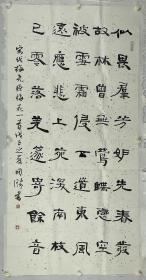 似畏羣芳妒先春發
故林曾無鶯蝶戀空
被雪霜侵不道東風
遠應悲上苑深南枝
已零落羌篴寄餘音
宋代梅尧臣梅花一首戊子之夏